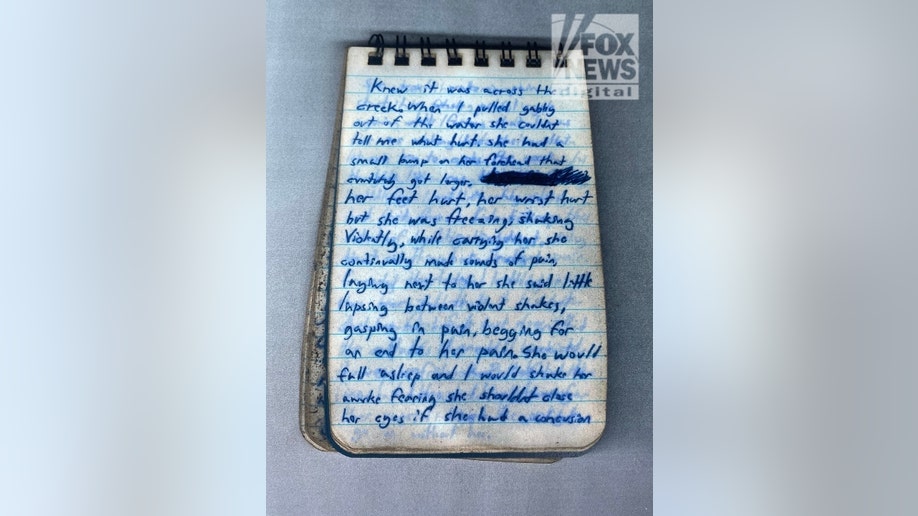 FOX
NEWS
digital
Knew it was across the
creek. When I pulled gabby
out of the water she couldnt
tell me what hurt. she had a
small bump on her forehead that
eventually got larger.
her feet hurt, her wrist hurt
but she was freezing, shaking
Violently, while carrying her she
continually made sounds of pain,
laying next to her she said little
lapsing between violent shakes,
gasping in pain, begging for
an end to her pain. She would
fall asleep and I would shake her
awake fearing she shouldnt close
her eyes if she had a concussion
without her.